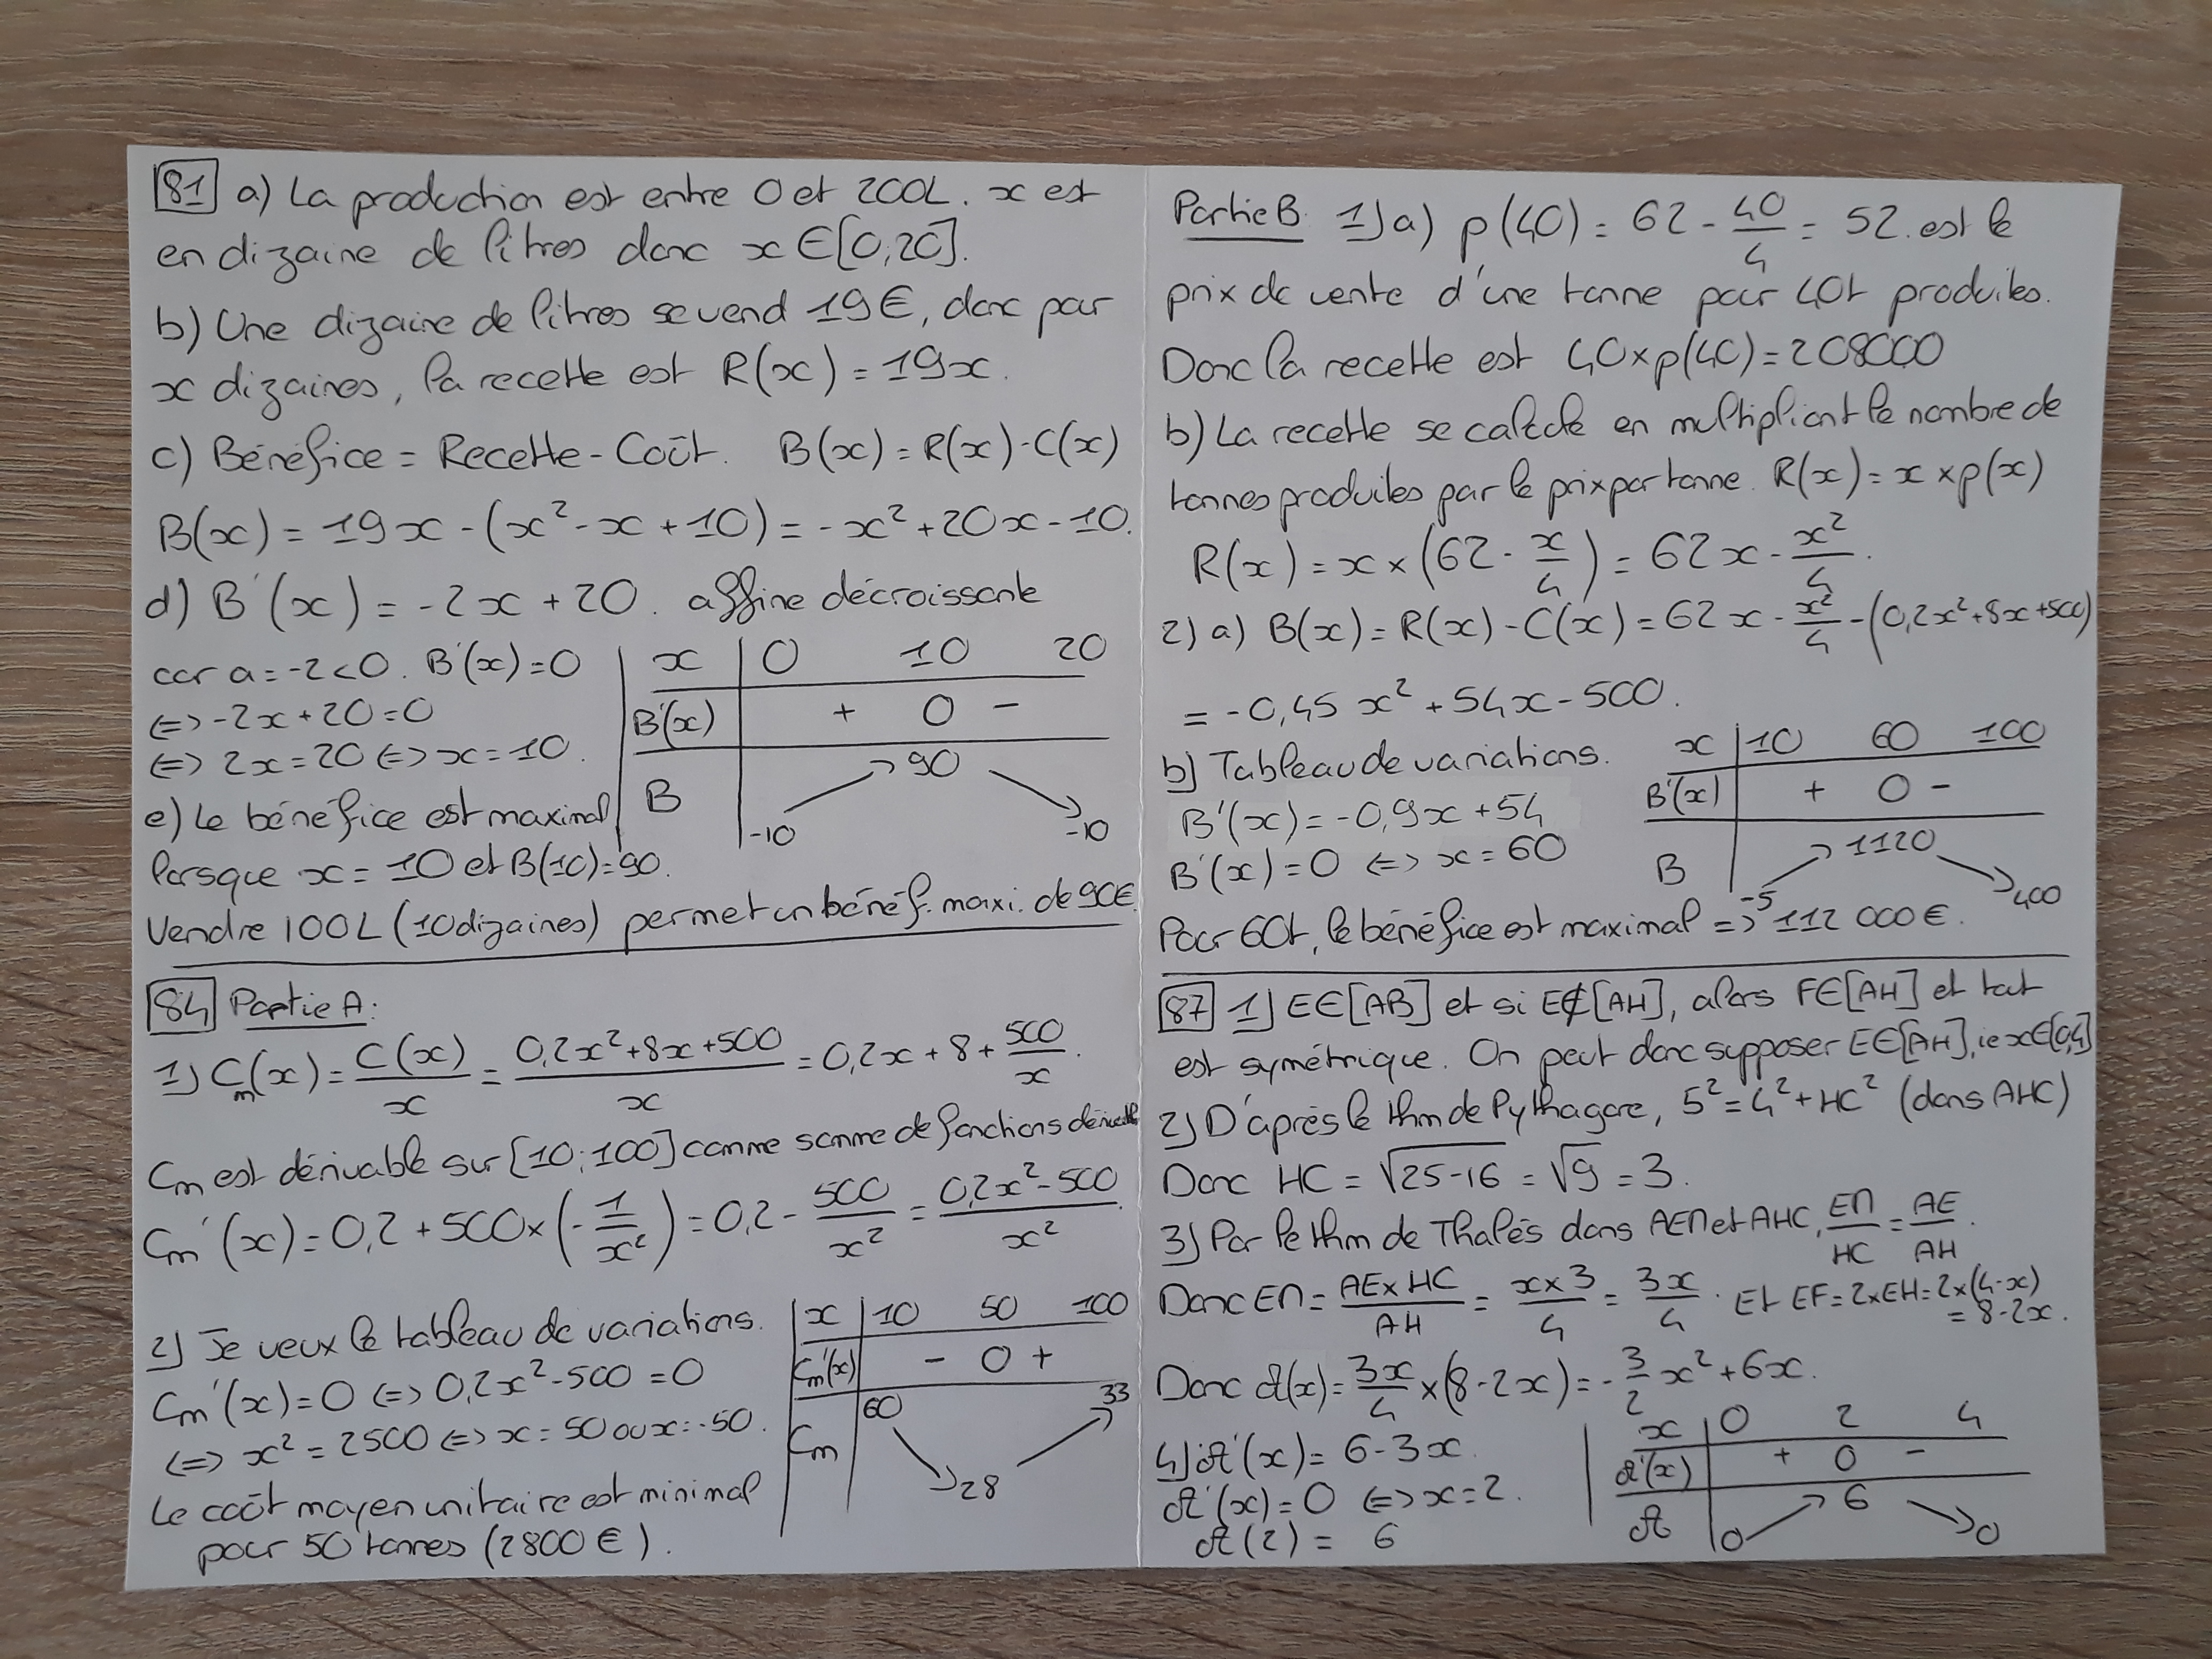 81 a) La production est entre 0 et 200L. x est
en dizaine de litres donc x ∈ [0,20].
b) Une dizaine de litres se vend 19€, donc par
x dizaines, la recette est R(x) = 19x.
c) Bénéfice = Recette - Coût. B(x) = R(x) - C(x)
B(x) = 19x - (x² - x + 10) = -x² + 20x - 10.
d) B'(x) = -2x + 20. affine décroissante
car a = -2 < 0. B'(x) = 0
⇔ -2x + 20 = 0
⇔ 2x = 20 ⇔ x = 10.
x | 0 10 20
B'(x) | + 0 -
B | -10 → 90 → -10
e) Le bénéfice est maximal
lorsque x = 10 et B(10) = 90.
Vendre 100L (10 dizaines) permet un bénéf. maxi. de 90€.
84 Partie A:
1) Cm(x) = C(x)/x = (0,2x² + 8x + 500)/x = 0,2x + 8 + 500/x.
Cm est dérivable sur [10;100] comme somme de fonctions dérivables
Cm'(x) = 0,2 + 500 × (-1/x²) = 0,2 - 500/x² = (0,2x² - 500)/x².
2) Je veux le tableau de variations.
Cm'(x) = 0 ⇔ 0,2x² - 500 = 0
⇔ x² = 2500 ⇔ x = 50 ou x = -50.
Le coût moyen unitaire est minimal
pour 50 tonnes (2800€).
x | 10 50 100
Cm'(x) | - 0 +
Cm | 60 → 28 → 33
Partie B. 1) a) p(40) = 62 - 40/4 = 52. est le
prix de vente d'une tonne pour 40t produites.
Donc la recette est 40 × p(40) = 208000
b) La recette se calcule en multipliant le nombre de
tonnes produites par le prix par tonne. R(x) = x × p(x)
R(x) = x × (62 - x/4) = 62x - x²/4.
2) a) B(x) = R(x) - C(x) = 62x - x²/4 - (0,2x² + 8x + 500)
= -0,45x² + 54x - 500.
b) Tableau de variations.
B'(x) = -0,9x + 54
B'(x) = 0 ⇔ x = 60
x | 10 60 100
B'(x) | + 0 -
B | -5 → 1120 → 400
Pour 60t, le bénéfice est maximal => 112 000€.
87 1) E∈[AB] et si E∉[AH], alors F∈[AH] et tout
est symétrique. On peut donc supposer E∈[AH], ie x∈[0,4]
2) D'après le thm de Pythagore, 5² = 4² + HC² (dans AHC)
Donc HC = √25-16 = √9 = 3.
3) Par le thm de Thalès dans AEM et AHC, EM/HC = AE/AH.
Donc EM = (AE × HC)/AH = (x × 3)/4 = 3x/4. Et EF = 2×EH = 2×(4-x)
= 8-2x.
Donc A(x) = 3x/4 × (8-2x) = -3/2 x² + 6x.
4) A'(x) = 6 - 3x.
A'(x) = 0 ⇔ x = 2.
A(2) = 6
x | 0 2 4
A'(x) | + 0 -
A | 0 → 6 → 0